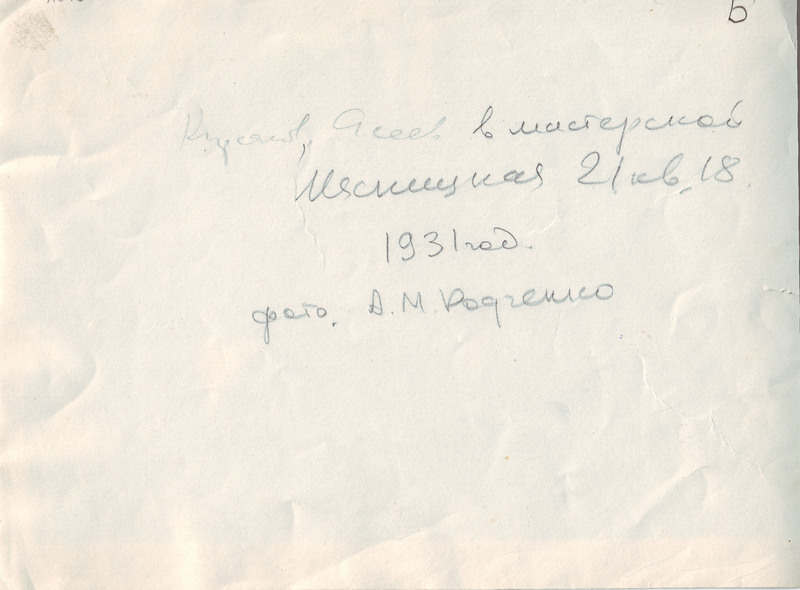 Б
Кирсанов, Асеев в мастерской
Мясницкая 21 кв. 18.
1931 год.
фото. А. М. Родченко